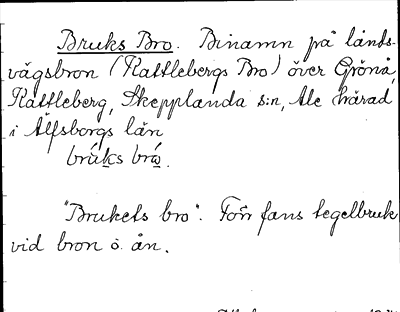 Bruks Bro. Binamn på lands-
vägsbron (Kattlebergs Bro) över Grönå,
Kattleberg, Skepplanda s:n, Ale härad
i Älfsborgs län
brúks brå.
"Brukets bro". Förr fans tegelbruk
vid bron o. ån.